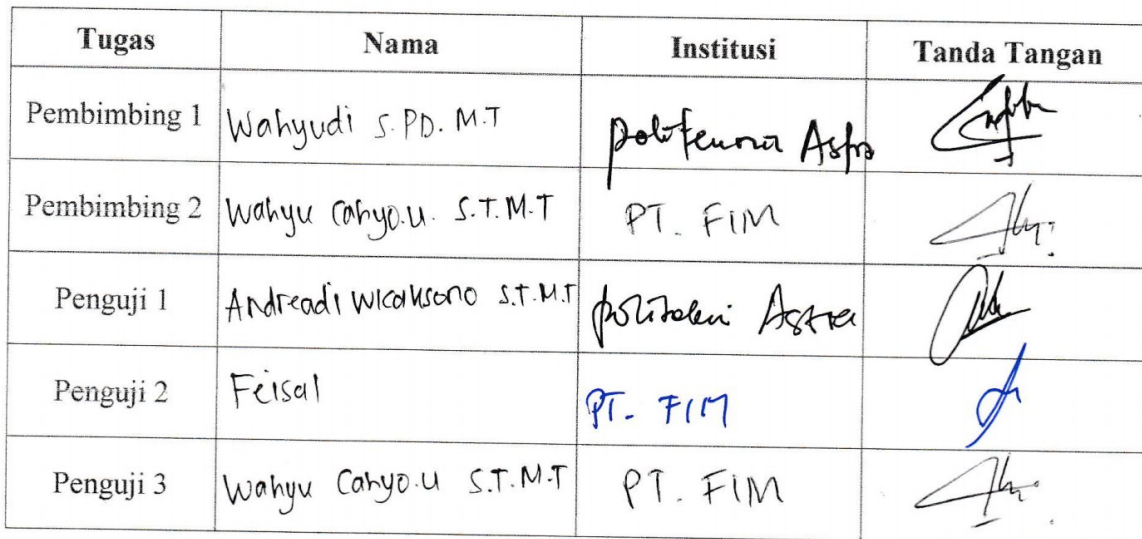 Tugas Nama Institusi Tanda Tangan
Pembimbing 1 Wahyudi S.PD. M.T Astra
Pembimbing 2 Wahyu Cahyo.u. S.T.M.T PT. FIM
Penguji 1 Andreadi Wicaksono S.T.M.T Astra
Penguji 2 Feisal PT. FIM
Penguji 3 Wahyu Cahyo.u S.T.M.T PT. FIM